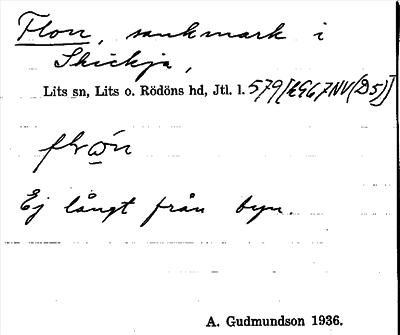 Flon, sankmark i
Skickja,
Lits sn, Lits o. Rödöns hd, Jtl. l. 579/[19G7NV(D5)]
Ej långt från byn.
A. Gudmundson 1936.